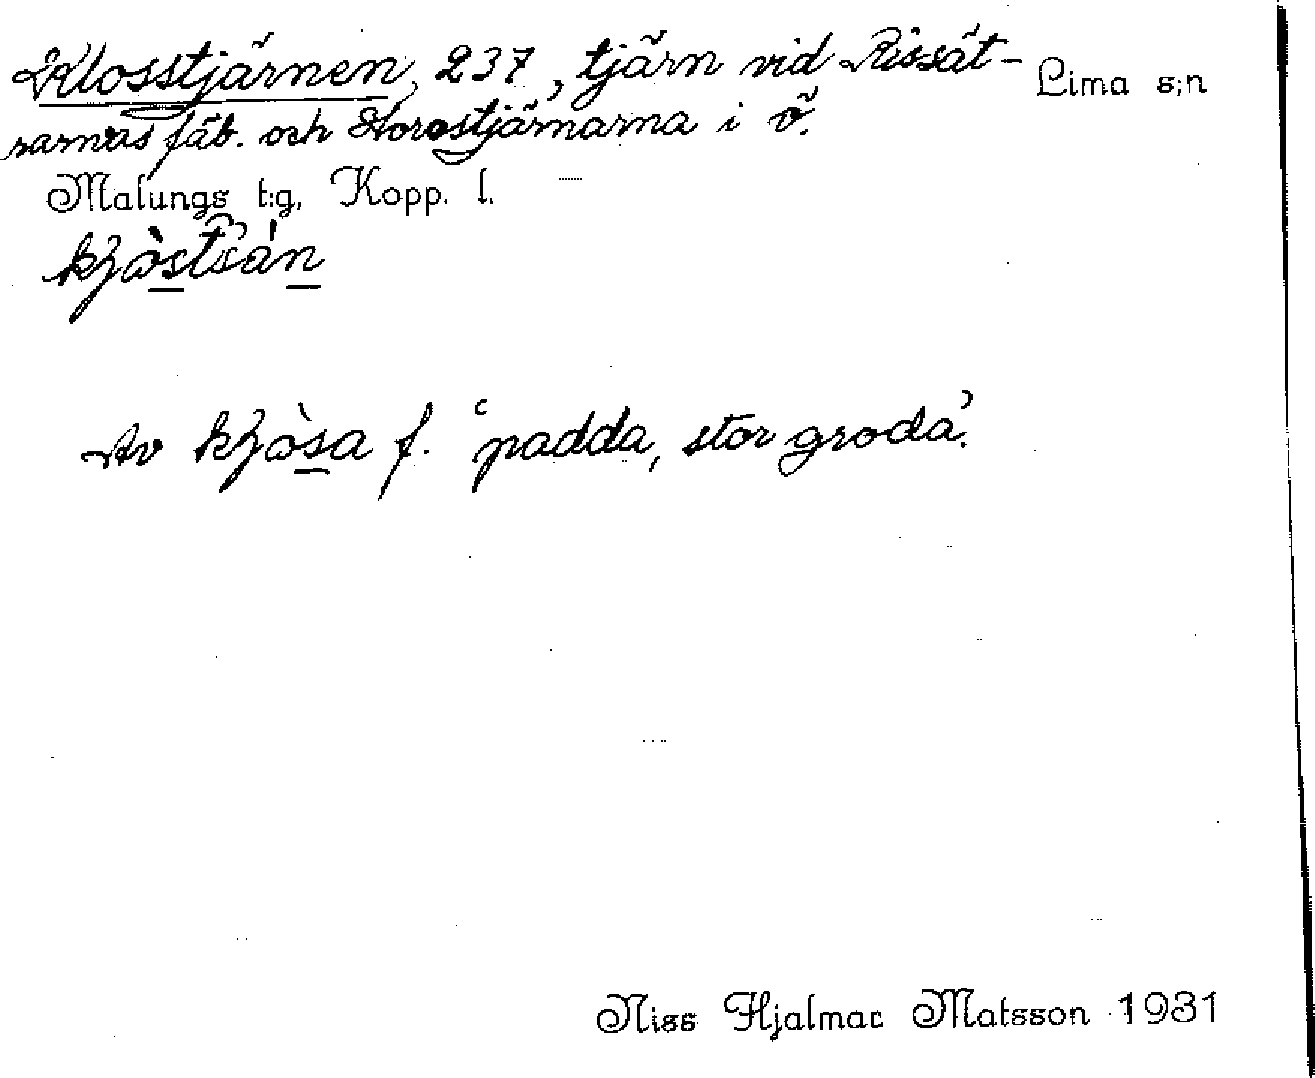 Klosstjärnen, 237, tjärn vid Rissät- Lima s:n
sarnas fäb. och Storostjärnarna i ö.
Malungs t:g, Kopp. l.
Av f. ‘padda, stor groda’.
Niss Hjalmar Matsson 1931